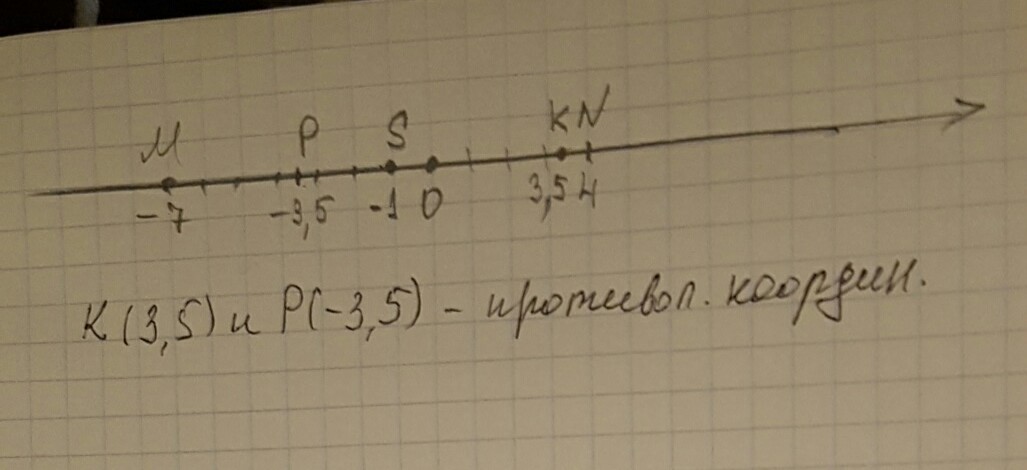 M P S K N
-7 -3,5 -1 0 3,5 4
K(3,5) и P(-3,5) - противоп. координ.